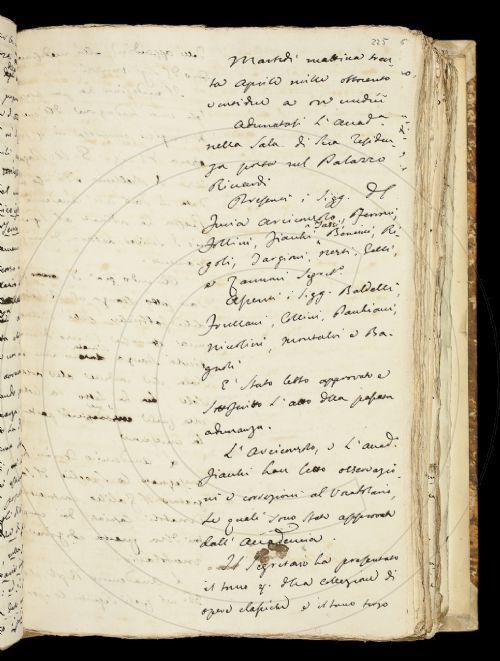 225 6
Martedì mattina tren
ta Aprile mille ottocento
ventidue a ore undici
Adunatasi l'Accad.a
nella Sala di Sua Residen
za posta nel Palazzo
Riccardi
Presenti i Sigg. Del
Furia Arciconsolo, Ferroni,
Follini, Fiacchi, Sarti, Bencini, Ri
goli, Targioni, Nesti, Gelli,
e Zannoni Segret.o
Assenti i Sigg. Baldelli,
Frullani, Collini, Pauliani,
Niccolini, Montalvi e Ba
gnoli
È stato letto approvato e
sottoscritto l'atto della passata
adunanza.
L'Arciconsolo, e l'Accad.
Fiacchi han letto osservazio
ni e correzioni al Vocabolario,
le quali sono state approvate
dall'Accademia.
Il Segretario ha presentato
il tomo 4. della collezione di
opere classiche e il tomo terzo